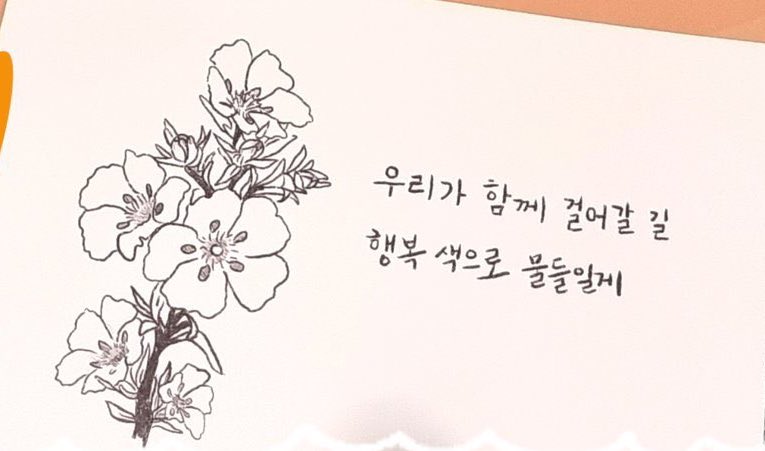 우리가 함께 걸어갈 길
행복 색으로 물들일게